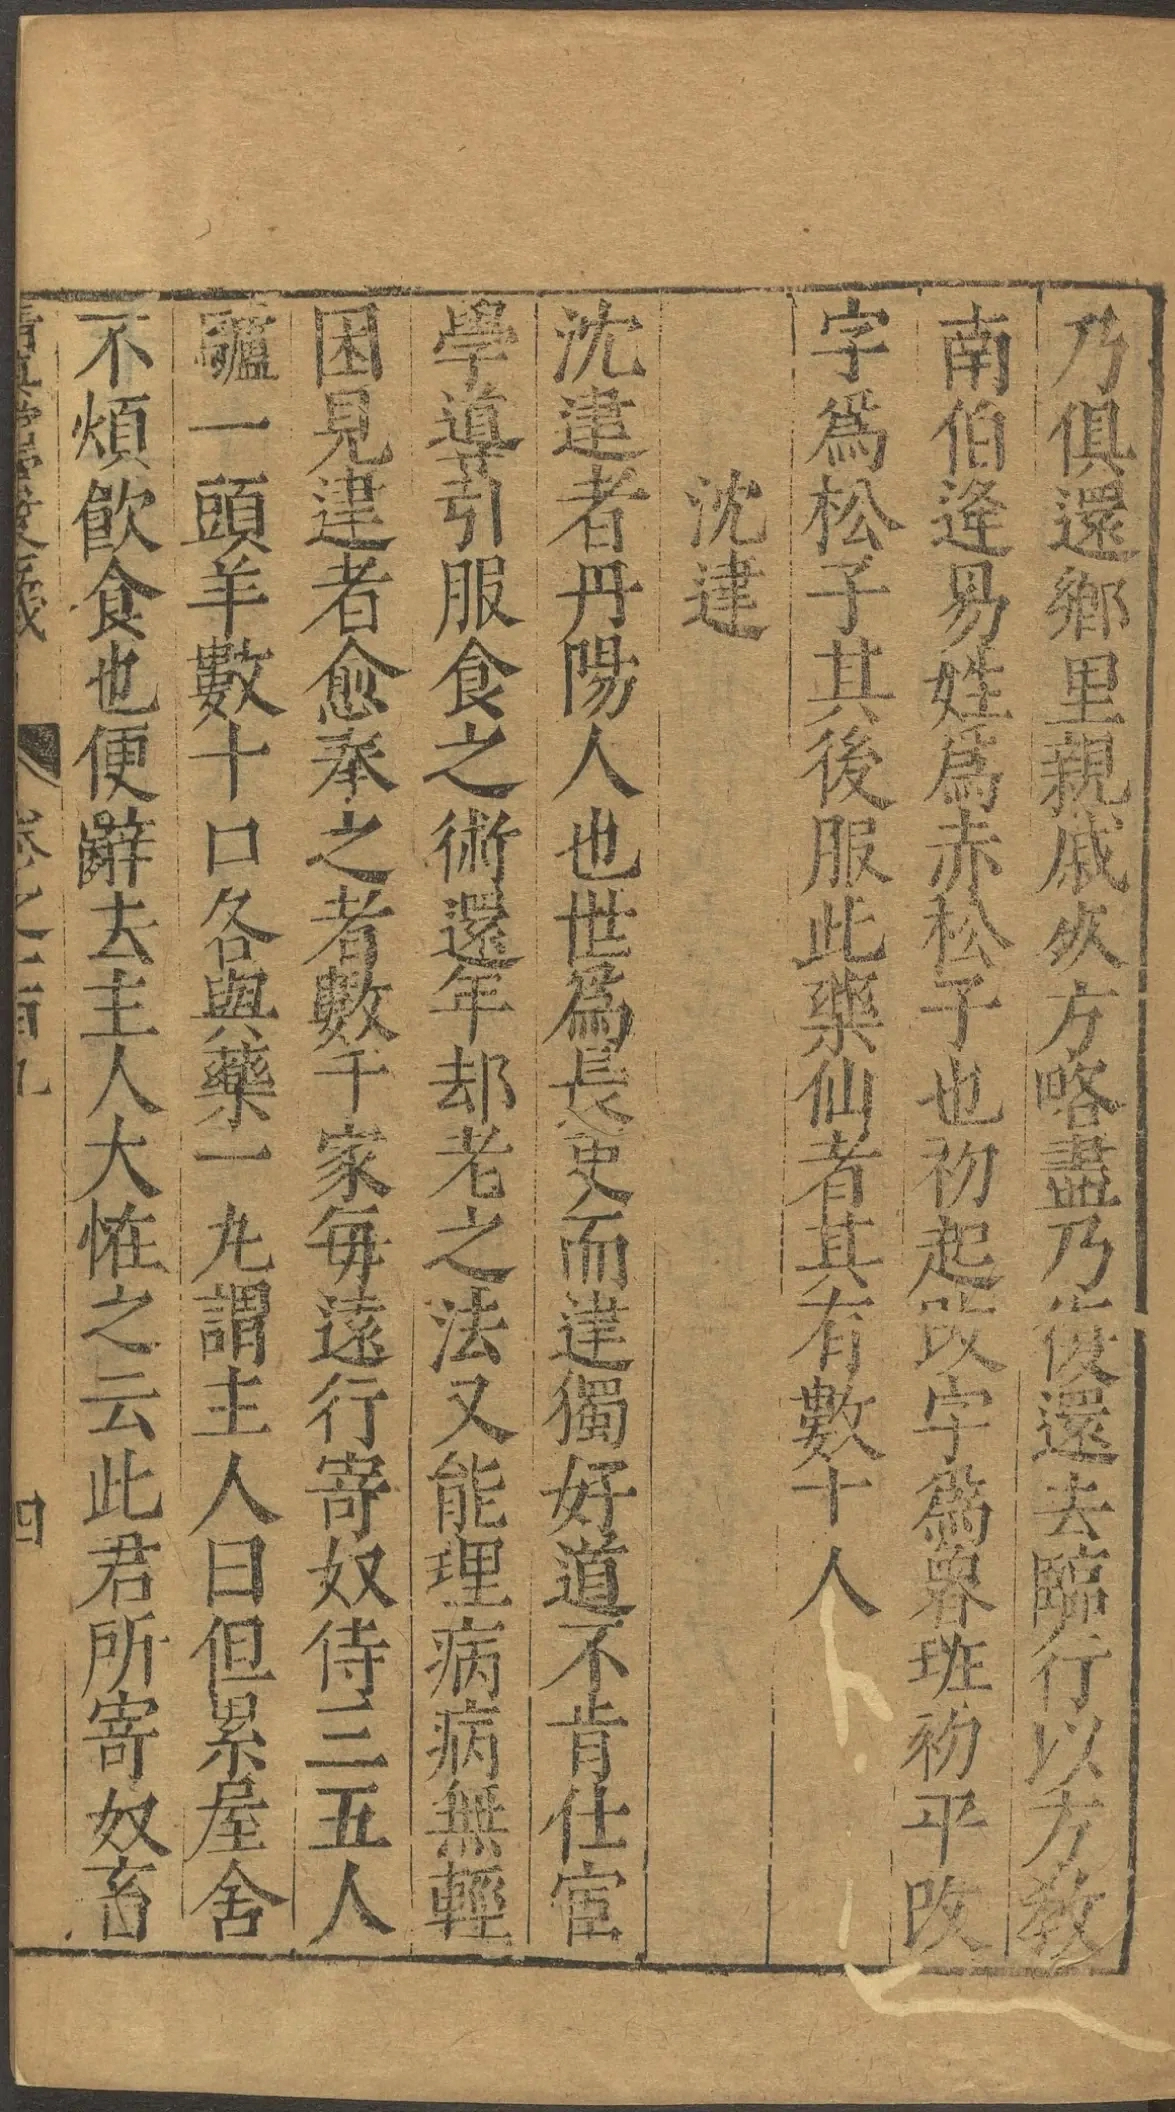 乃俱還鄉里親戚死方略盡乃復還去臨行以方教
南伯逄易姓爲赤松子也初起改字爲魯班初平改
字爲松子其後服此藥仙者其有數十人
沈建
沈建者丹陽人也世爲長吏而建獨好道不肯仕宦
學導引服食之術還年却老之法又能理病病無輕
困見建者愈奉之者數千家每遠行寄奴侍三五人
驢一頭羊數十口各與藥一丸謂主人曰但累屋舍
不煩飲食也便辭去主人大恠之云此君所寄奴畜
卷之一百九 四